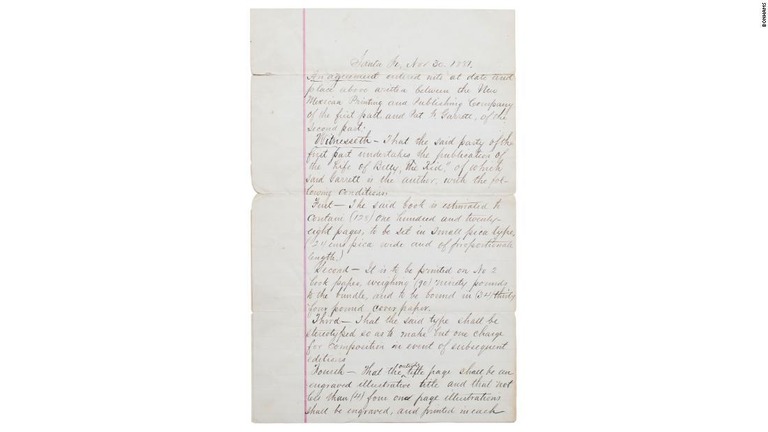 Santa Fe, Nov 30, 1881.
An agreement entered into at date and
place above written between the New
Mexican Printing and Publishing Company
of the first part, and Pat F. Garrett, of the
second part:
Witnesseth — That the said party of the
first part undertakes the publication of
the "Life of Billy, the Kid," of which
said Garrett is the author, with the fol-
lowing conditions
First — The said book is estimated to
contain (128) one hundred and twenty-
eight pages, to be set in small pica type,
(24 ems pica wide and of proportionate
length.)
Second — It is to be printed on No 2
book paper, weighing (90) ninety pounds
to the bundle, and to be bound in (34) thirty
four pound cover paper.
Third — That the said type shall be
stereotyped so as to make but one charge
for composition in event of subsequent
editions
Fourth — That the outside title page shall be an
engraved illustrative title and that not
less than (4) four one page illustrations
shall be engraved, and printed in each
BONHAMS